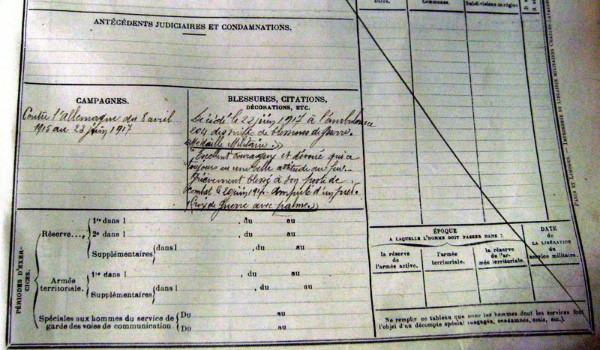 DATES.
Communes.
Subdivisions de région
ANTÉCÉDENTS JUDICIAIRES ET CONDAMNATIONS.
CAMPAGNES.
Contre l'Allemagne du 8 avril
1915 au 23 juin 1917
BLESSURES, CITATIONS,
DÉCORATIONS, ETC.
Décédé le 22 juin 1917 à l'ambulance
des suites de blessures de guerre
Médaille Militaire
Excellent et dévoué qui a
toujours eu une belle attitude au feu.
Grièvement blessé à son poste de
combat le 20 juin 1917.
Croix de Guerre avec palme
PÉRIODES D'EXERCICES.
Réserve...,
1re dans l , du au
2e dans l , du au
Supplémentaires dans l , du au
Armée
territoriale.
1re dans l , du au
Supplémentaires dans l , du au
Spéciales aux hommes du service de
garde des voies de communication.
Du au
Du au
ÉPOQUE
A LAQUELLE L'HOMME DOIT PASSER DANS :
la réserve
de
l'armée active.
l'armée
territoriale.
la réserve
de l'ar-
mée territoriale.
DATE
DE LA LIBÉRATION
du
service militaire.
Ne remplir ce tableau que pour les hommes dont les services font
l'objet d'un décompte spécial (engagés, condamnés, omis, etc.)